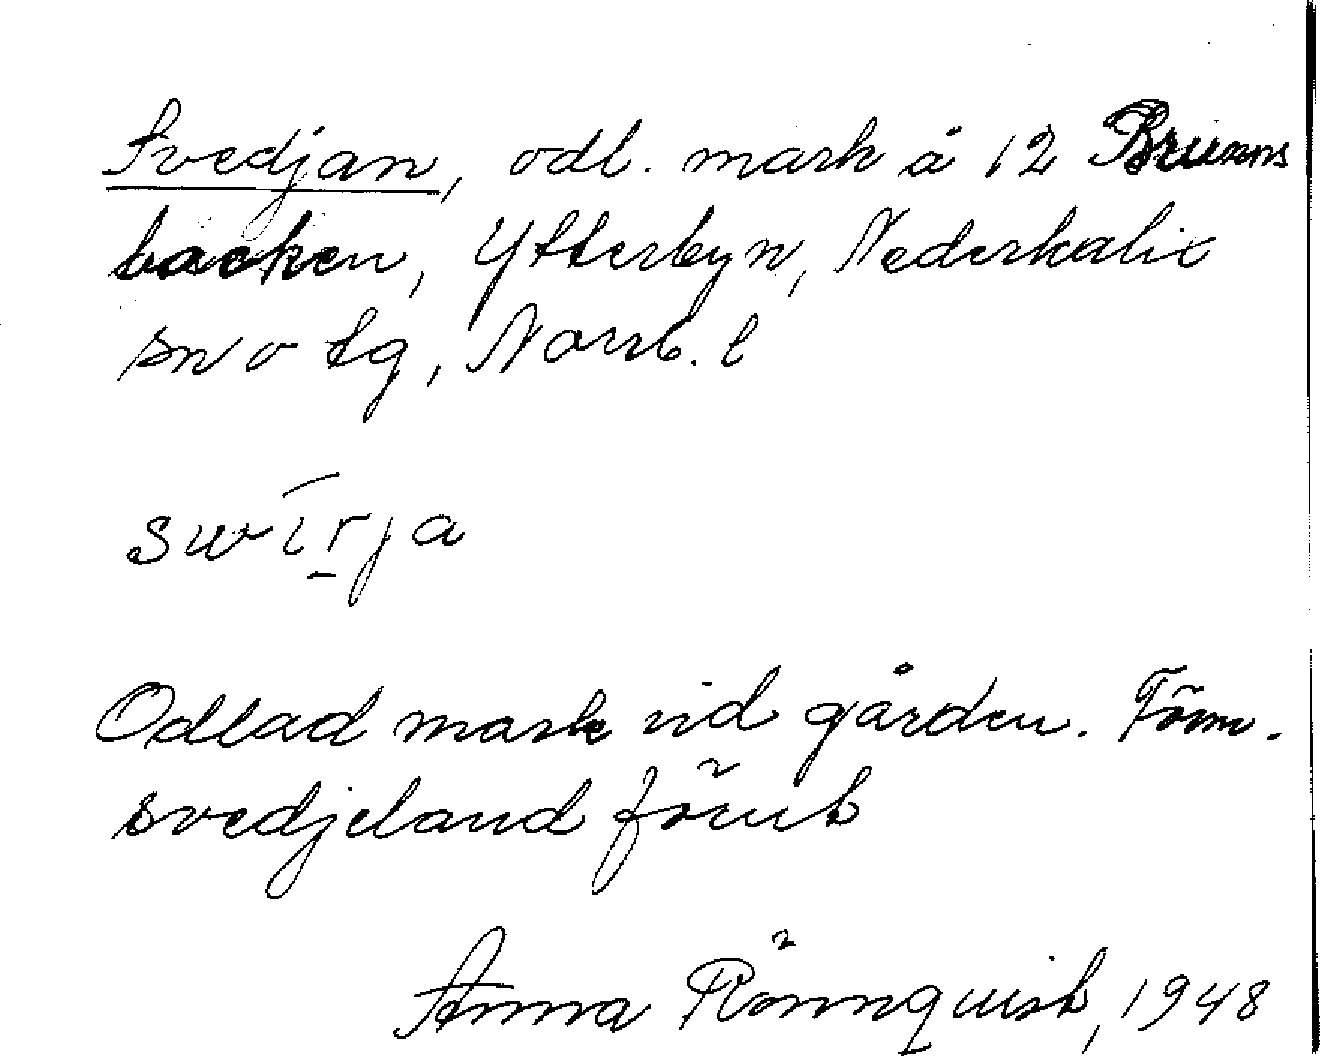 Svedjan, odl. mark å 12 Brunns
backen, Ytterbyn, Nederkalix
sn o tg, Norrb. l
swīr̲ja
Odlad mark vid gården. Töm.
svedjeland förut
Anna Rönnquist, 1948